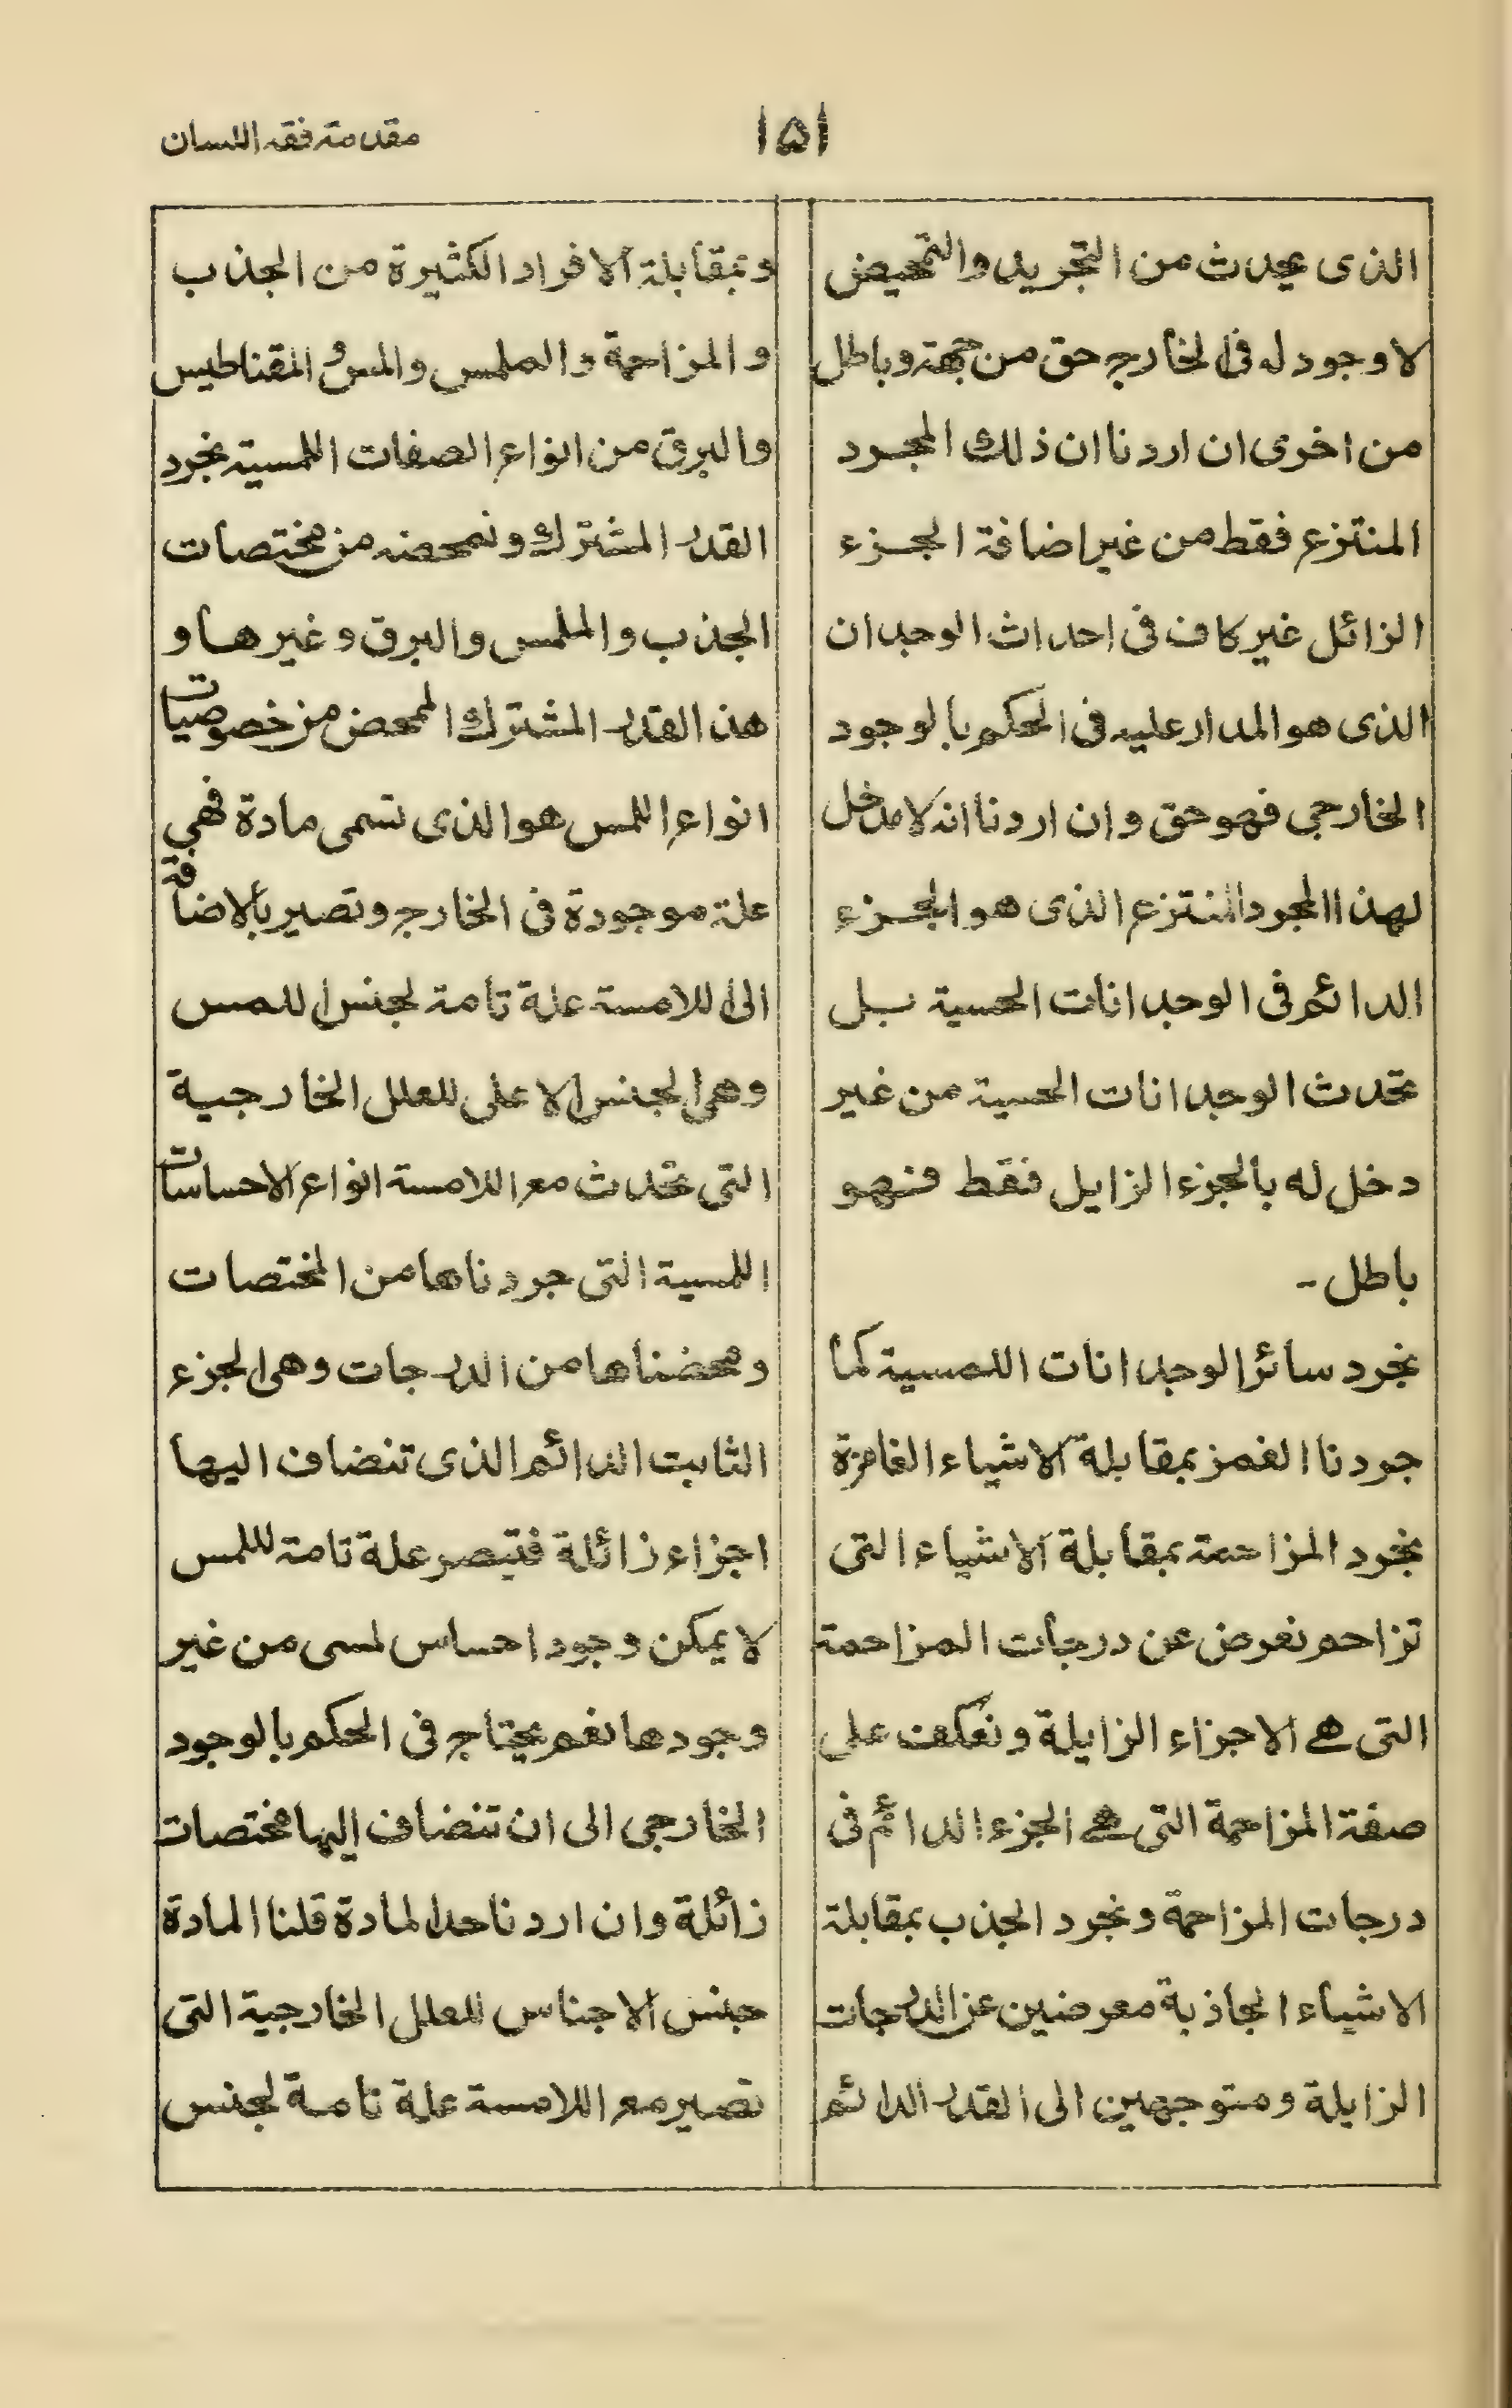 مقدمة فقه اللسان
١٥١
الذى يحدث من التجريد والتمحيض
لا وجود له فى الخارج حق من جهة وباطل
من اخرى ان اردنا ان ذلك المجرد
المنتزع فقط من غير اضافة الجزء
الزائل غير كاف فى احداث الوجدان
الذى هو المدار عليه فى الحكم بالوجود
الخارجى فهو حق وان اردنا انه لا مدخل
لهذا المجرد المنتزع الذى هو الجزء
الدائم فى الوجدانات الحسية بل
تحدث الوجدانات الحسية من غير
دخل له بالجزء الزايل فقط فهو
باطل -
نجرد سائر الوجدانات اللمسية كما
جردنا الغمز بمقابلة الاشياء الغامزة
نجرد المزاحمة بمقابلة الاشياء التى
تزاحم نعرض عن درجات المزاحمة
التى هے الاجزاء الزايلة ونعكف على
صفة المزاحمة التى هے الجزء الدائم فى
درجات المزاحمة ونجرد الجذب بمقابلة
الاشياء الجاذبة معرضين عن الدرجات
الزايلة ومتوجهين الى القدر الدائم
وبمقابلة الافراد الكثيرة من الجذب
والمزاحمة والململس والمس والمقناطيس
والبرق من انواع الصفات اللمسية نجرد
القدر المشترك ونمحضه من مختصات
الجذب والململس والبرق وغيرها و
هذا القدر المشترك الممحض من خصوصيات
انواع اللمس هو الذى تسمى مادة فهي
علة موجودة فى الخارج وتصير بالاضافة
الى اللامسة علة تامة لجنس اللمس
وهى الجنس الاعلى للعلل الخارجية
التى تحدث مع اللامسة انواع الاحساسات
اللمسية التى جردناها من المختصات
ومحضناها من الدرجات وهى الجزء
الثابت الدائم الذى تنضاف اليها
اجزاء زائلة فتيصر علة تامة لللمس
لا يمكن وجود احساس لمسى من غير
وجودها نعم يحتاج فى الحكم بالوجود
الخارجى الى ان تنضاف إليها مختصات
زائلة وان اردنا حد المادة قلنا المادة
جنس الاجناس للعلل الخارجية التى
تصير مع اللامسة علة تامة لجنس